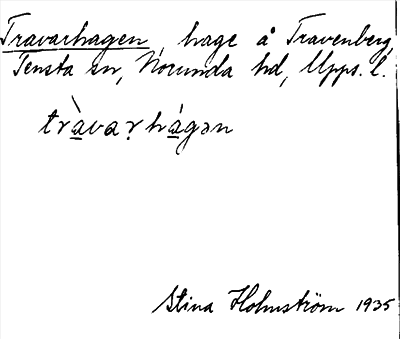 Travarhagen, hage å Travenberg,
Tensta sn, Norunda hd, Upps. l.
tràvaṛhágən
Stina Holmström 1935